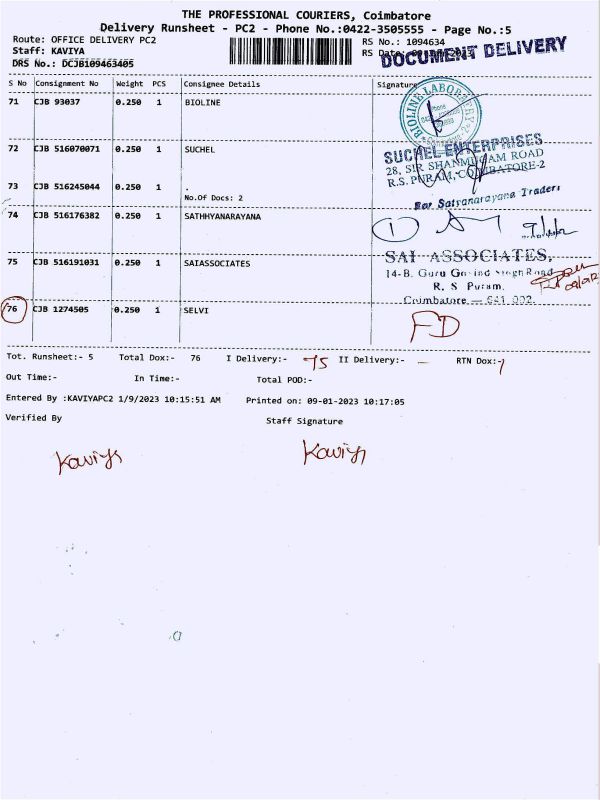 THE PROFESSIONAL COURIERS, Coimbatore
Delivery Runsheet - PC2 - Phone No.:0422-3505555 - Page No.:5
Route: OFFICE DELIVERY PC2
RS No.: 1094634
Staff: KAVIYA
RS Date:
DOCUMENT DELIVERY
DRS No.: DCJB109463405
S No Consignment No Weight PCS Consignee Details Signature
71 CJB 93037 0.250 1 BIOLINE
BIOLINE LABORATORY
72 CJB 516070071 0.250 1 SUCHEL
SUCHEL ENTERPRISES
28, SIR SHANMUGAM ROAD
R.S. PURAM, COIMBATORE-2
73 CJB 516245044 0.250 1 .
No.Of Docs: 2
For Satyanarayana Traders
74 CJB 516176382 0.250 1 SATHHYANARAYANA
1
75 CJB 516191031 0.250 1 SAIASSOCIATES
SAI ASSOCIATES,
14-B, Guru Govind Singh Road
R. S. Puram,
Coimbatore — 641 002.
76 CJB 1274505 0.250 1 SELVI
FD
Tot. Runsheet:- 5 Total Dox:- 76 I Delivery:- 75 II Delivery:- — RTN Dox:-1
Out Time:- In Time:- Total POD:-
Entered By :KAVIYAPC2 1/9/2023 10:15:51 AM Printed on: 09-01-2023 10:17:05
Verified By Staff Signature
Kaviya Kaviya